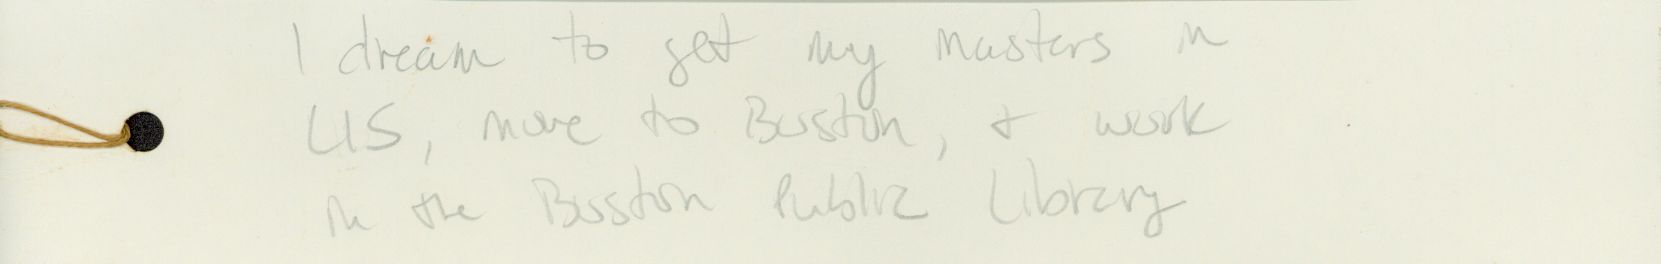 I dream to get my masters in
LIS, move to Boston, + work
in the Boston Public Library